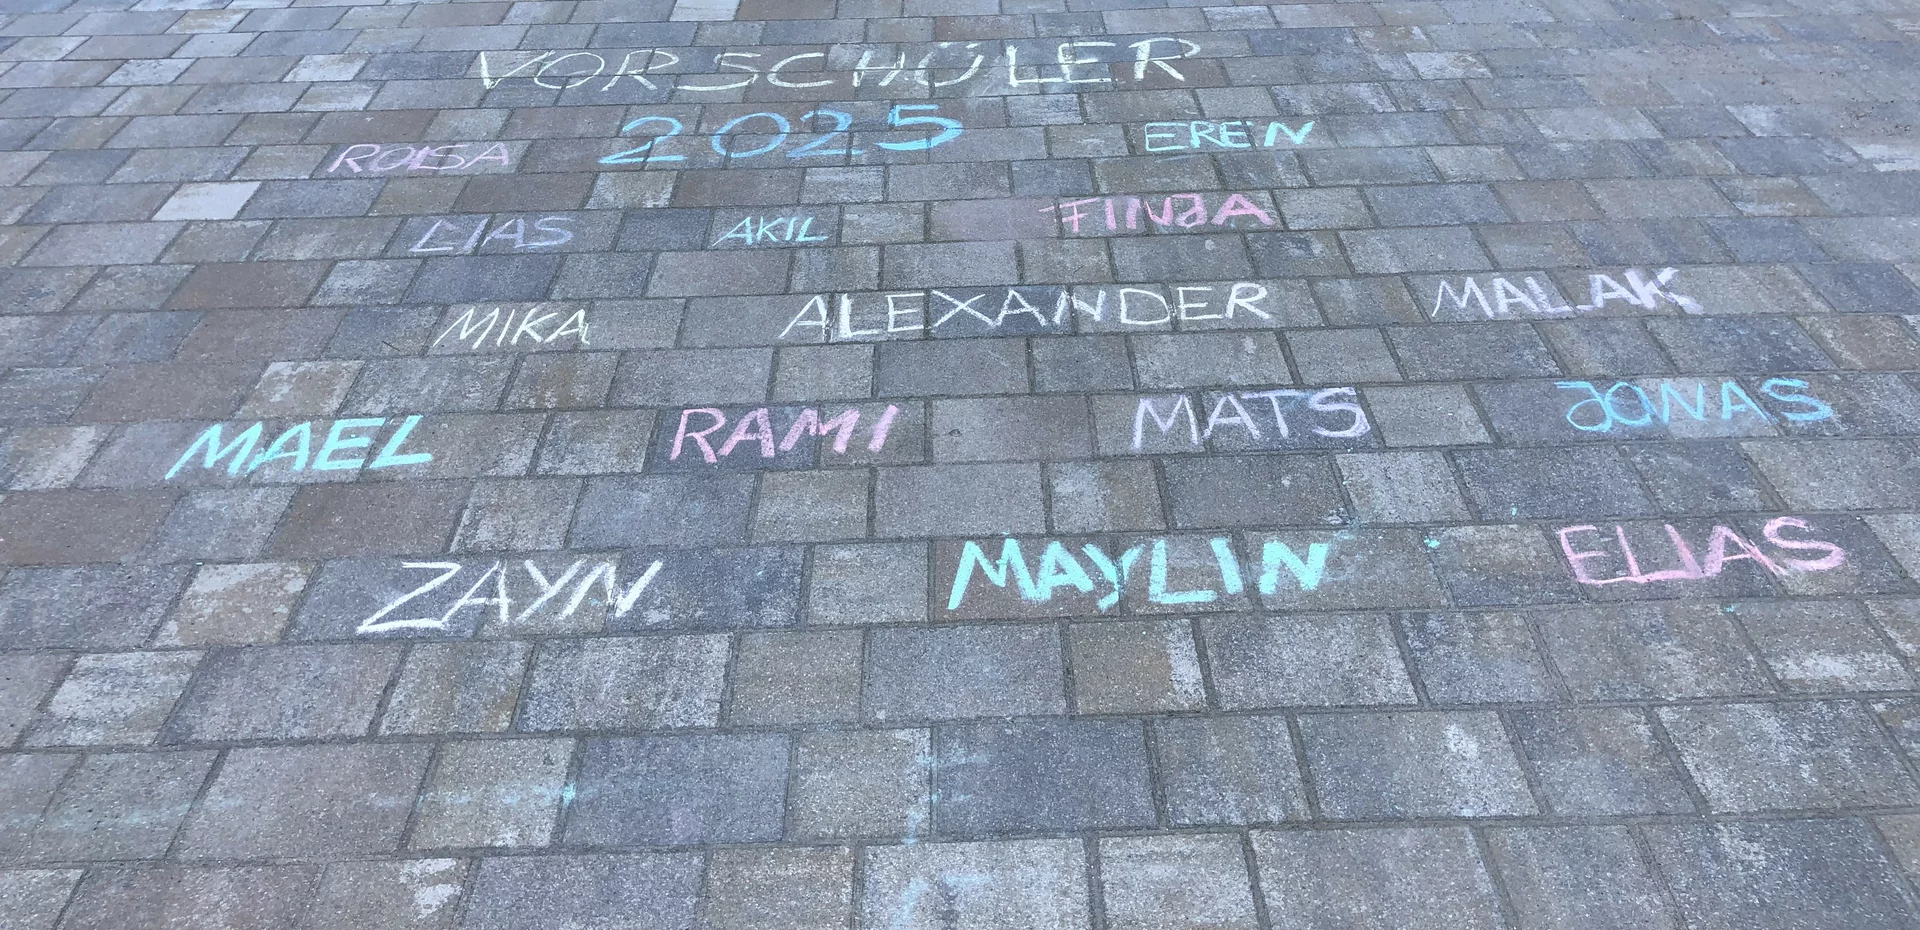 VORSCHÜLER
2025
ROISA EREN
LIAS AKIL FINJA
MIKA ALEXANDER MALAK
MAEL RAMI MATS JONAS
ZAYN MAYLIN ELIAS